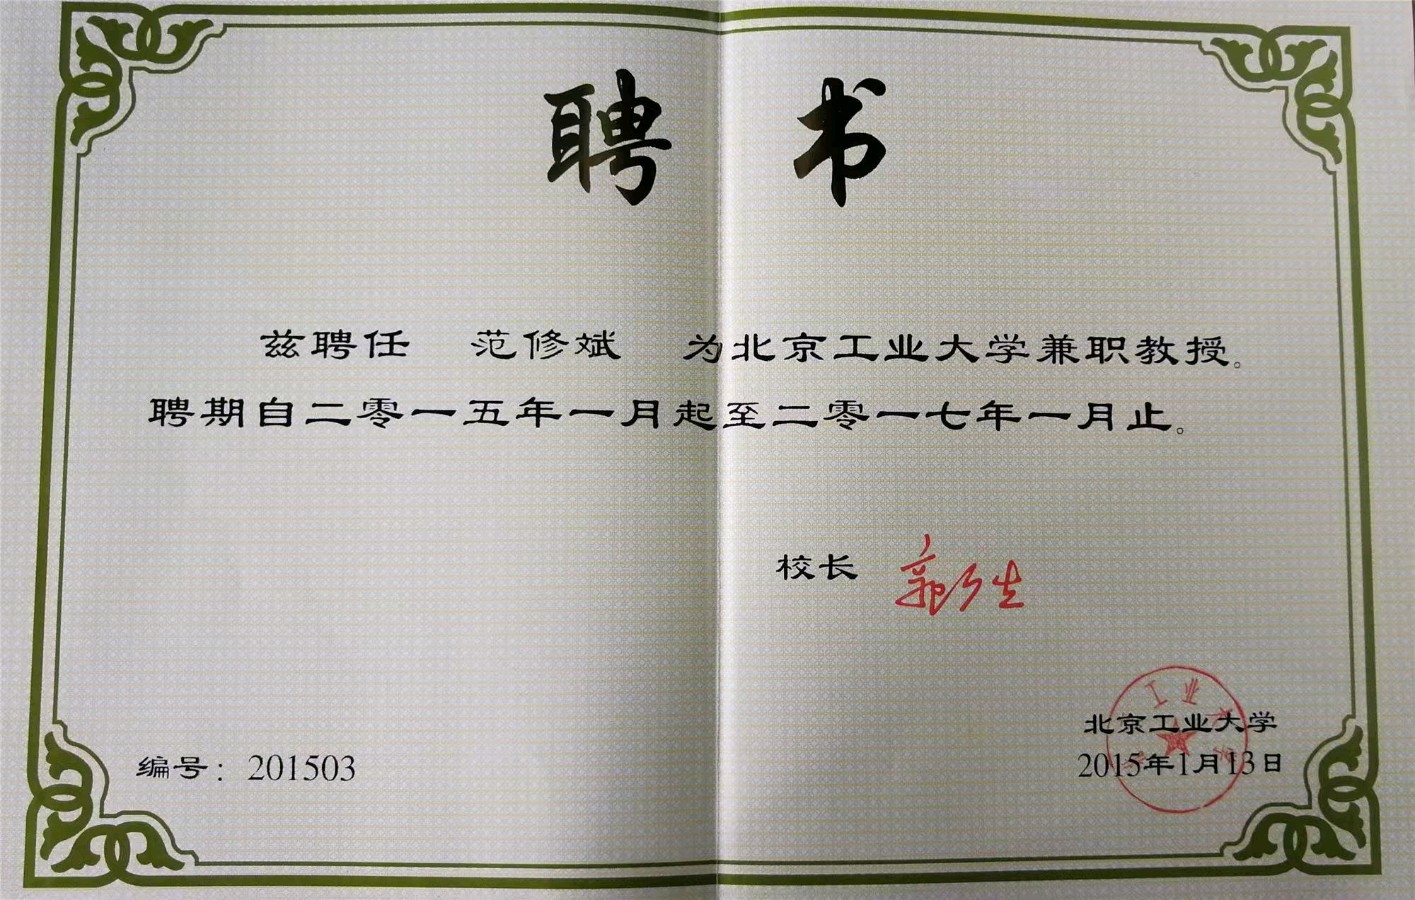 聘 书
兹聘任 范修斌 为北京工业大学兼职教授。
聘期自二零一五年一月起至二零一七年一月止。
校长
北京工业大学
2015年1月13日
编号：201503